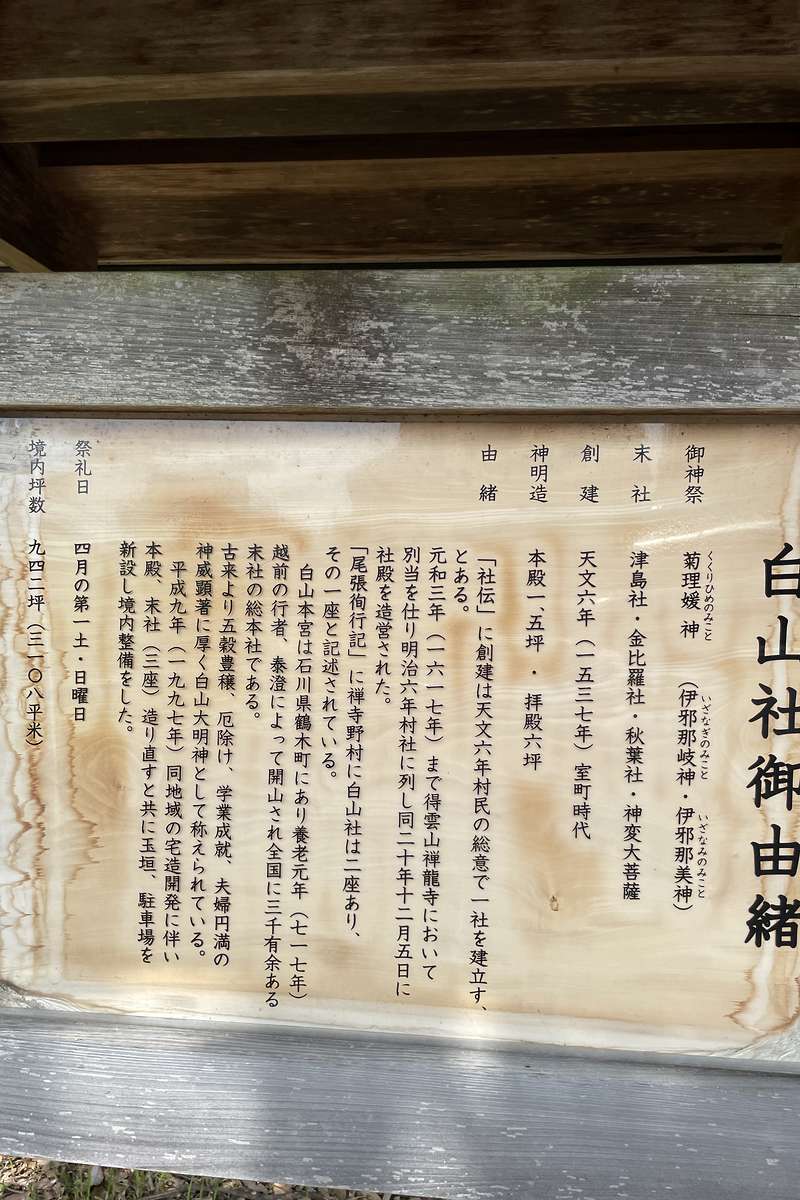 白山社御由緒
御神祭 菊理媛神（伊邪那岐神・伊邪那美神）
くくりひめのみこと いざなぎのみこと いざなみのみこと
末社 津島社・金比羅社・秋葉社・神変大菩薩
創建 天文六年（一五三七年）室町時代
神明造 本殿一、五坪 ・ 拝殿六坪
由緒 「社伝」に創建は天文六年村民の総意で一社を建立す、
とある。
元和三年（一六一七年）まで得雲山禅龍寺において
別当を仕り明治六年村社に列し同二十年十二月五日に
社殿を造営された。
「尾張徇行記」に禅寺野村に白山社は二座あり、
その一座と記述されている。
白山本宮は石川県鶴木町にあり養老元年（七一七年）
越前の行者、泰澄によって開山され全国に三千有余ある
末社の総本社である。
古来より五穀豊穣、厄除け、学業成就、夫婦円満の
神威顕著に厚く白山大明神として称えられている。
平成九年（一九九七年）同地域の宅造開発に伴い
本殿、末社（三座）造り直すと共に玉垣、駐車場を
新設し境内整備をした。
祭礼日 四月の第一土・日曜日
境内坪数 九四二坪（三一〇八平米）